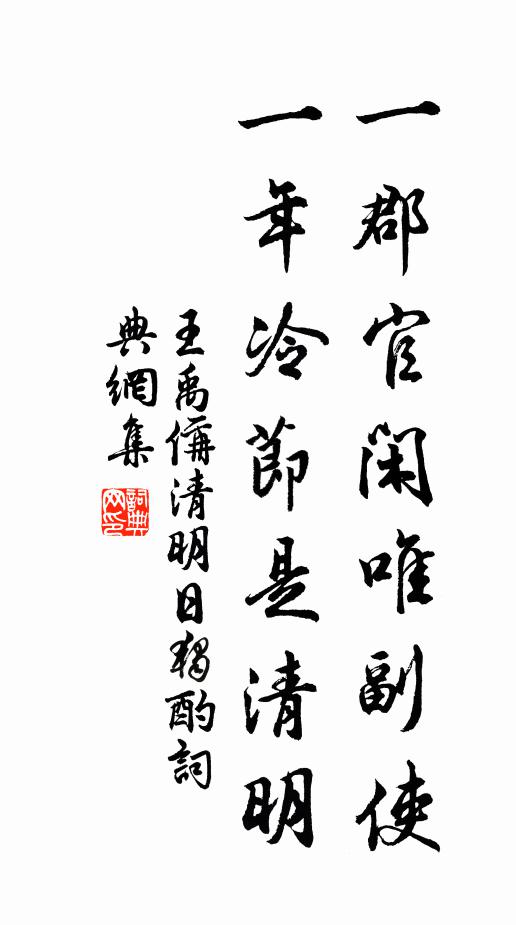 一郡官閑唯副使
一年冷節是清明
王禹偁清明日獨酌詞
典網集
詞典網印